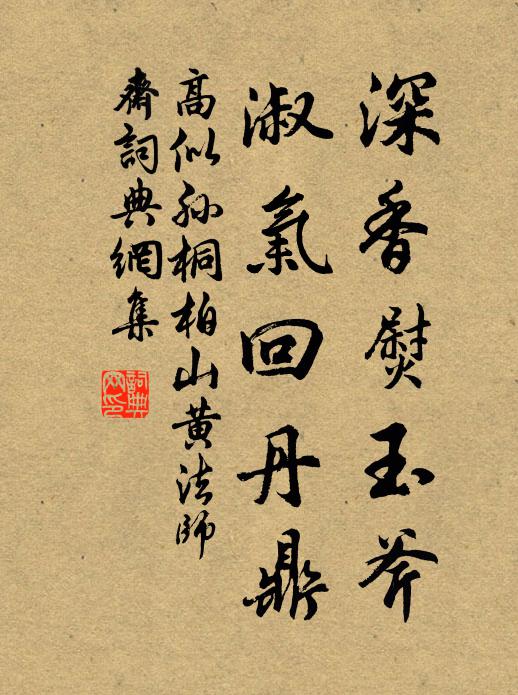 深香熨玉斧
淑氣回丹鼎
高似孫桐柏山黃法師
齋詞典網集
詞典網印